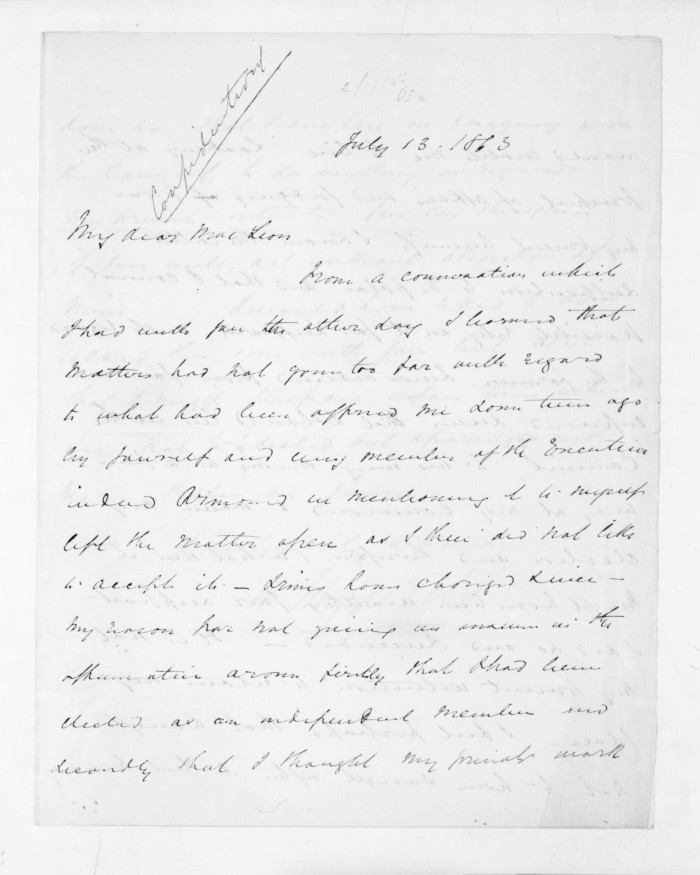 Confidential
July 13. 1863
My dear MacLean
From a conversation which
I had with you the other day I learned that
matters had not gone too far with regard
to what had been offered me some time ago
by yourself and every member of the Executive
indeed Ormond in mentioning it to myself
left the matter open as I then did not like
to accept it – times have changed since –
My reason for not giving an answer in the
affirmative arose firstly that I had been
elected as an independent member and
secondly that I thought my private work